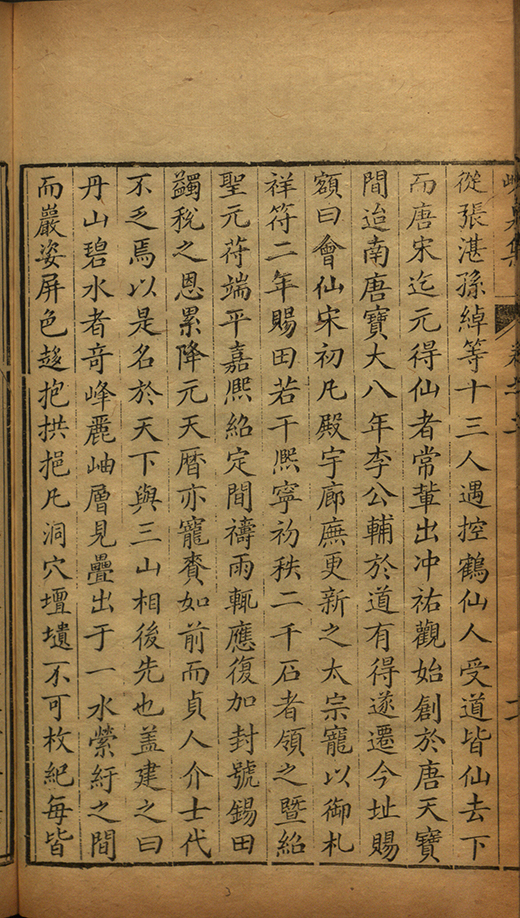 從張湛孫綽等十三人遇控鶴仙人受道皆仙去下
而唐宋迄元得仙者常輩出冲祐觀始創於唐天寶
間迨南唐寶大八年李公輔於道有得遂遷今址賜
額曰會仙宋初凡殿宇廊廡更新之太宗寵以御札
祥符二年賜田若干熈寧初秩二千石者領之暨紹
聖元苻端平嘉熈紹定間禱雨輒應復加封號錫田
蠲稅之恩累降元天曆亦寵賚如前而貞人介士代
不乏焉以是名於天下與三山相後先也盖建之曰
丹山碧水者奇峰麗岫層見疊出于一水縈紆之間
而巖姿屏色趍抱拱挹凡洞穴壇墠不可枚紀每皆